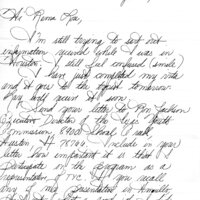 Hi Rena Loa,
I'm still trying to sort out
information received while I was in
Houston. I still feel confused (smile)
I have just completed my vita
and it goes to the typist tomorrow.
Send your letter to Ron Jackson
Executive Director of the Texas Youth
Commission
Houston TX Include in your
letter how important it is that I
participate in the Program as a
representative of TYC. If you recall
any of my presentations in